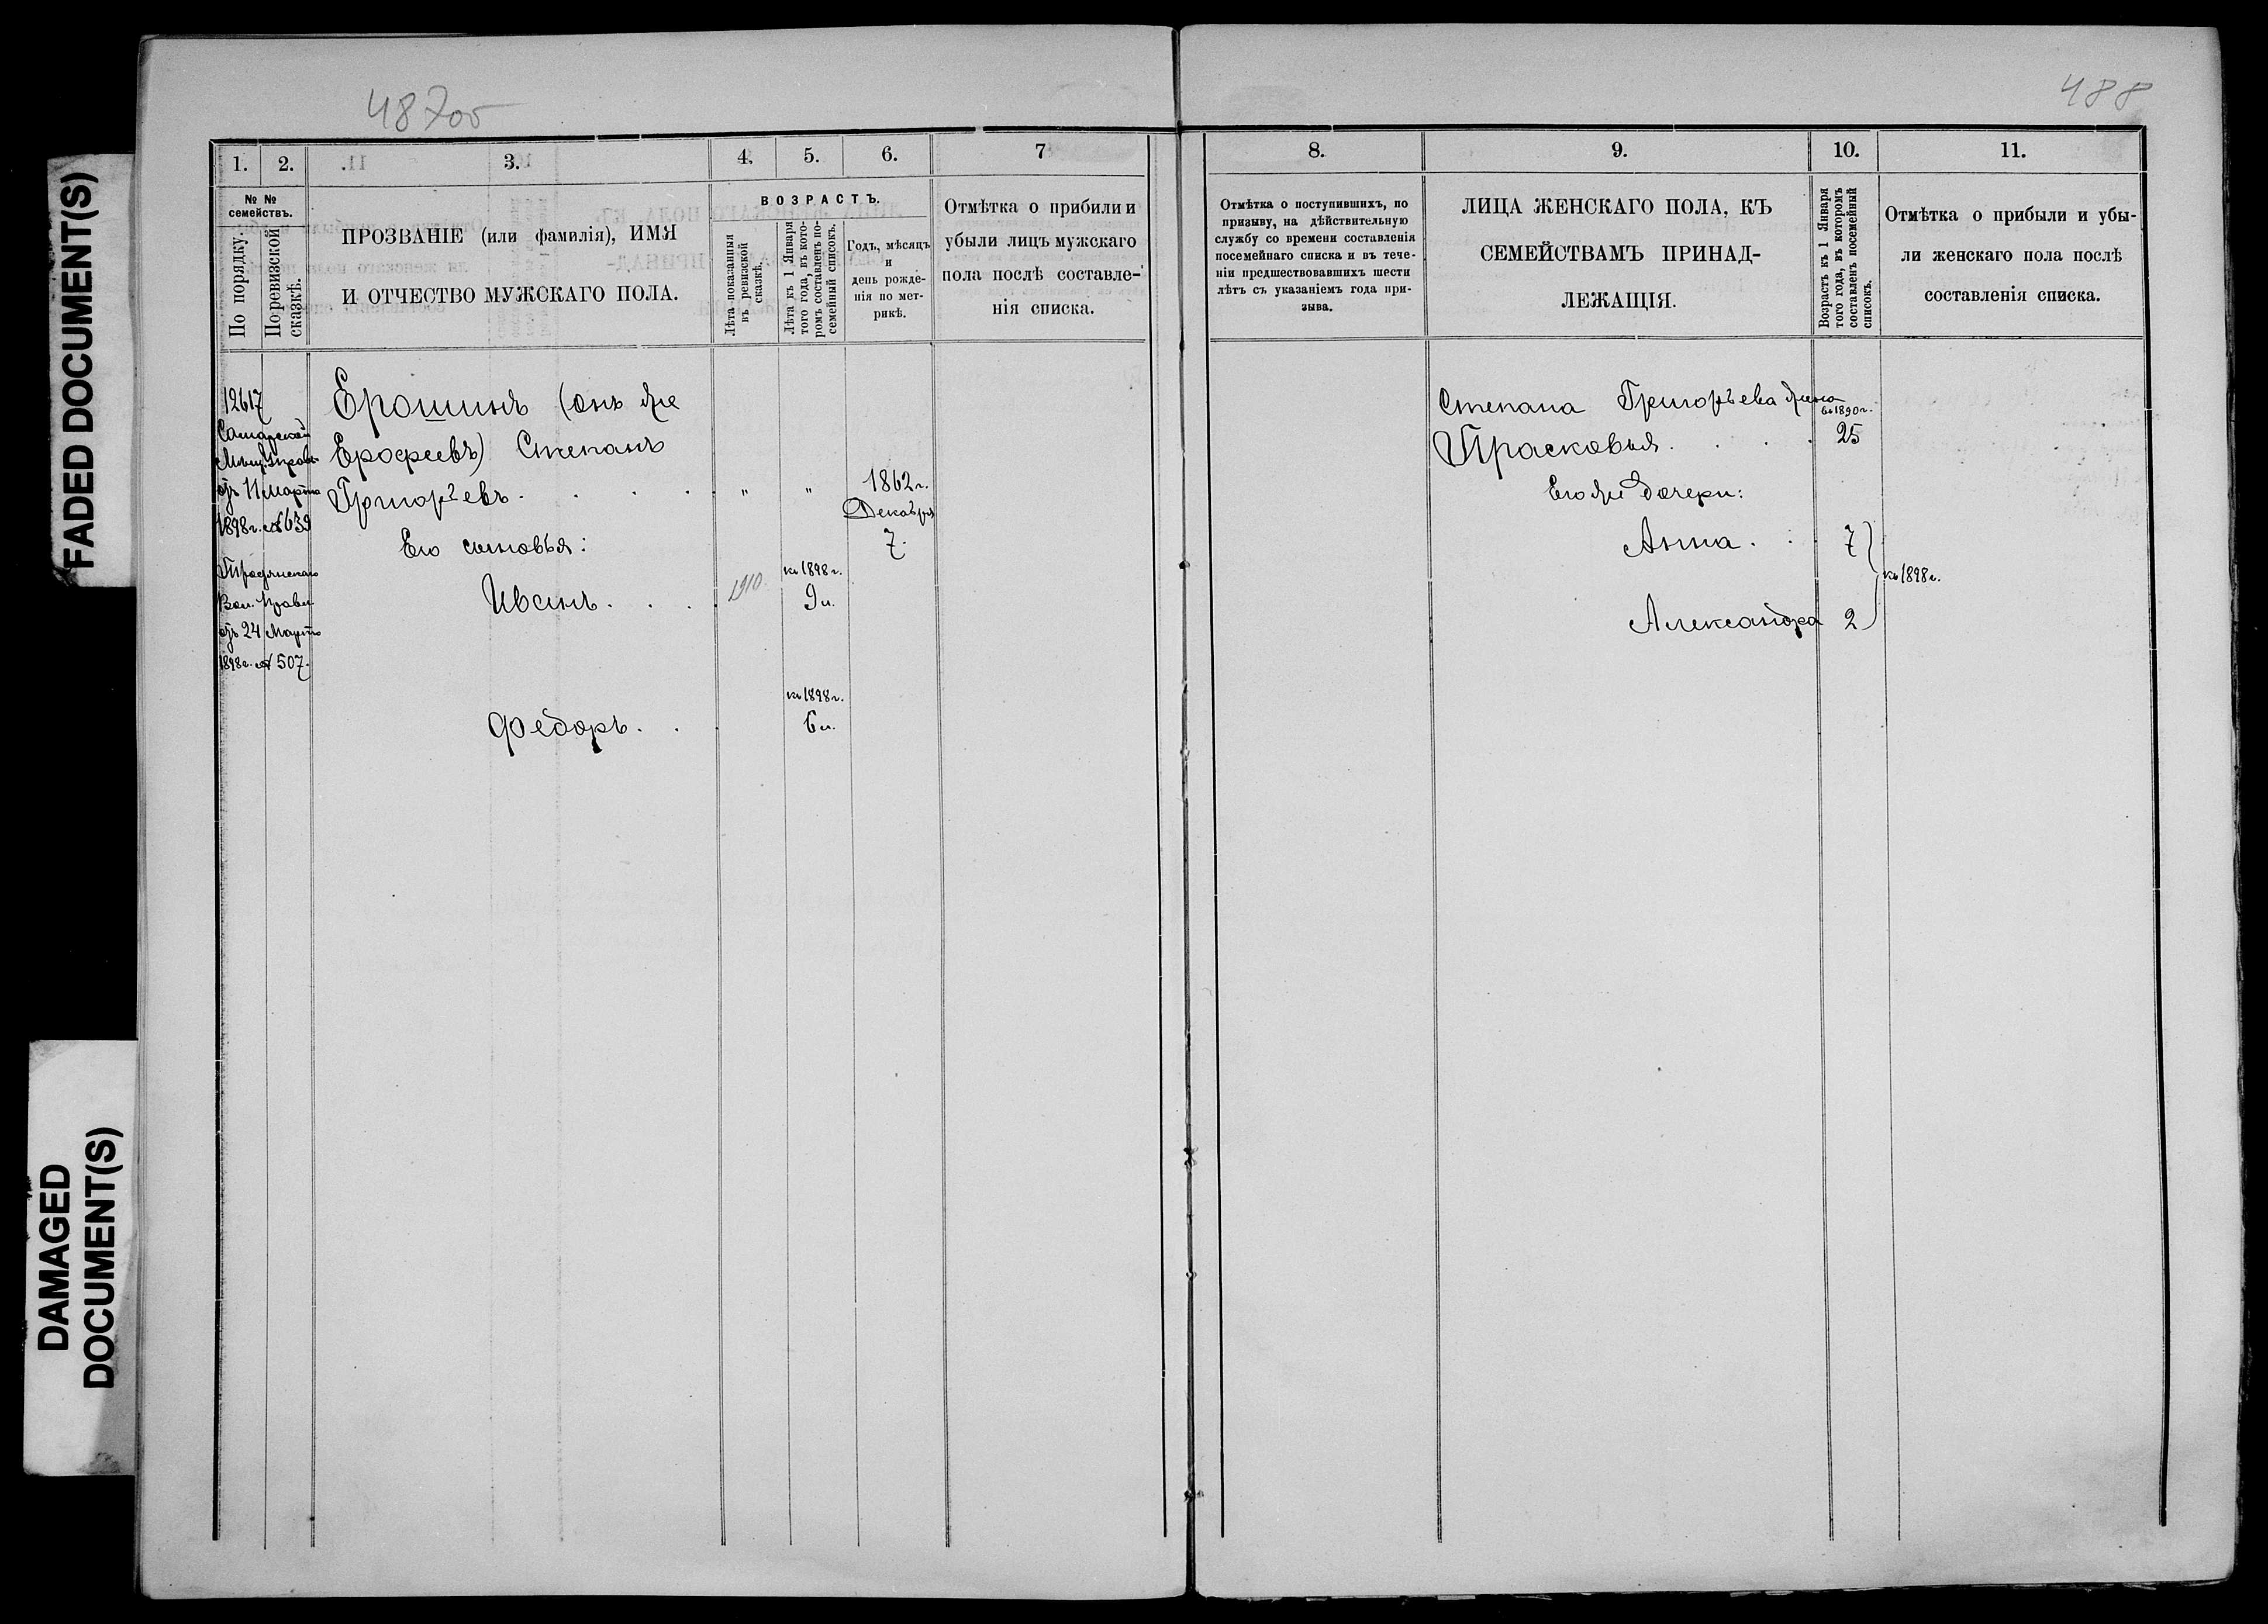 FADED DOCUMENT(S)
DAMAGED
DOCUMENT(S)
487об
1.
2.
3.
4.
5.
6.
7
№ №
семействъ.
По порядку.
По ревизской
сказкѣ.
ПРОЗВАНІЕ (или фамилія), ИМЯ
И ОТЧЕСТВО МУЖСКАГО ПОЛА.
ВОЗРАСТЪ.
Лѣта показанныя
въ ревизской
сказкѣ.
Лѣта къ 1 Января
того года, въ кото-
ромъ составленъ по-
семейный списокъ.
Годъ, мѣсяцъ
и
день рожде-
нія по мет-
рикѣ.
Отмѣтка о прибили и
убыли лицъ мужскаго
пола послѣ составле-
нія списка.
12617
Самарской
Мѣщ. Управ.
отъ 11 Марта
1898 г. № 639
Вол. Правл.
отъ 24 Марта
1898 г. № 507.
Ерошинъ (онъ же
Ерофеевъ) Степанъ
Григорьевъ . . . . " " 1862 г.
Декабря
7.
Его сыновья:
къ 1898 г.
Иванъ. . . . 1910. 9 л.
къ 1898 г.
Федоръ. . . 6 л.
488
8.
9.
10.
11.
Отмѣтка о поступившихъ, по
призыву, на дѣйствительную
службу со времени составленія
посемейнаго списка и въ тече-
ніи предшествовавшихъ шести
лѣтъ съ указаніемъ года при-
зыва.
ЛИЦА ЖЕНСКАГО ПОЛА, КЪ
СЕМЕЙСТВАМЪ ПРИНАД-
ЛЕЖАЩІЯ.
Возрастъ къ 1 Января
того года, въ которомъ
составленъ посемейный
списокъ.
Отмѣтка о прибыли и убы-
ли женскаго пола послѣ
составленія списка.
Степана Григорьева жена
1890 г.
Прасковья. . . . 25
Его же дочери:
Анна. . . 7
къ 1898 г.
Александра 2